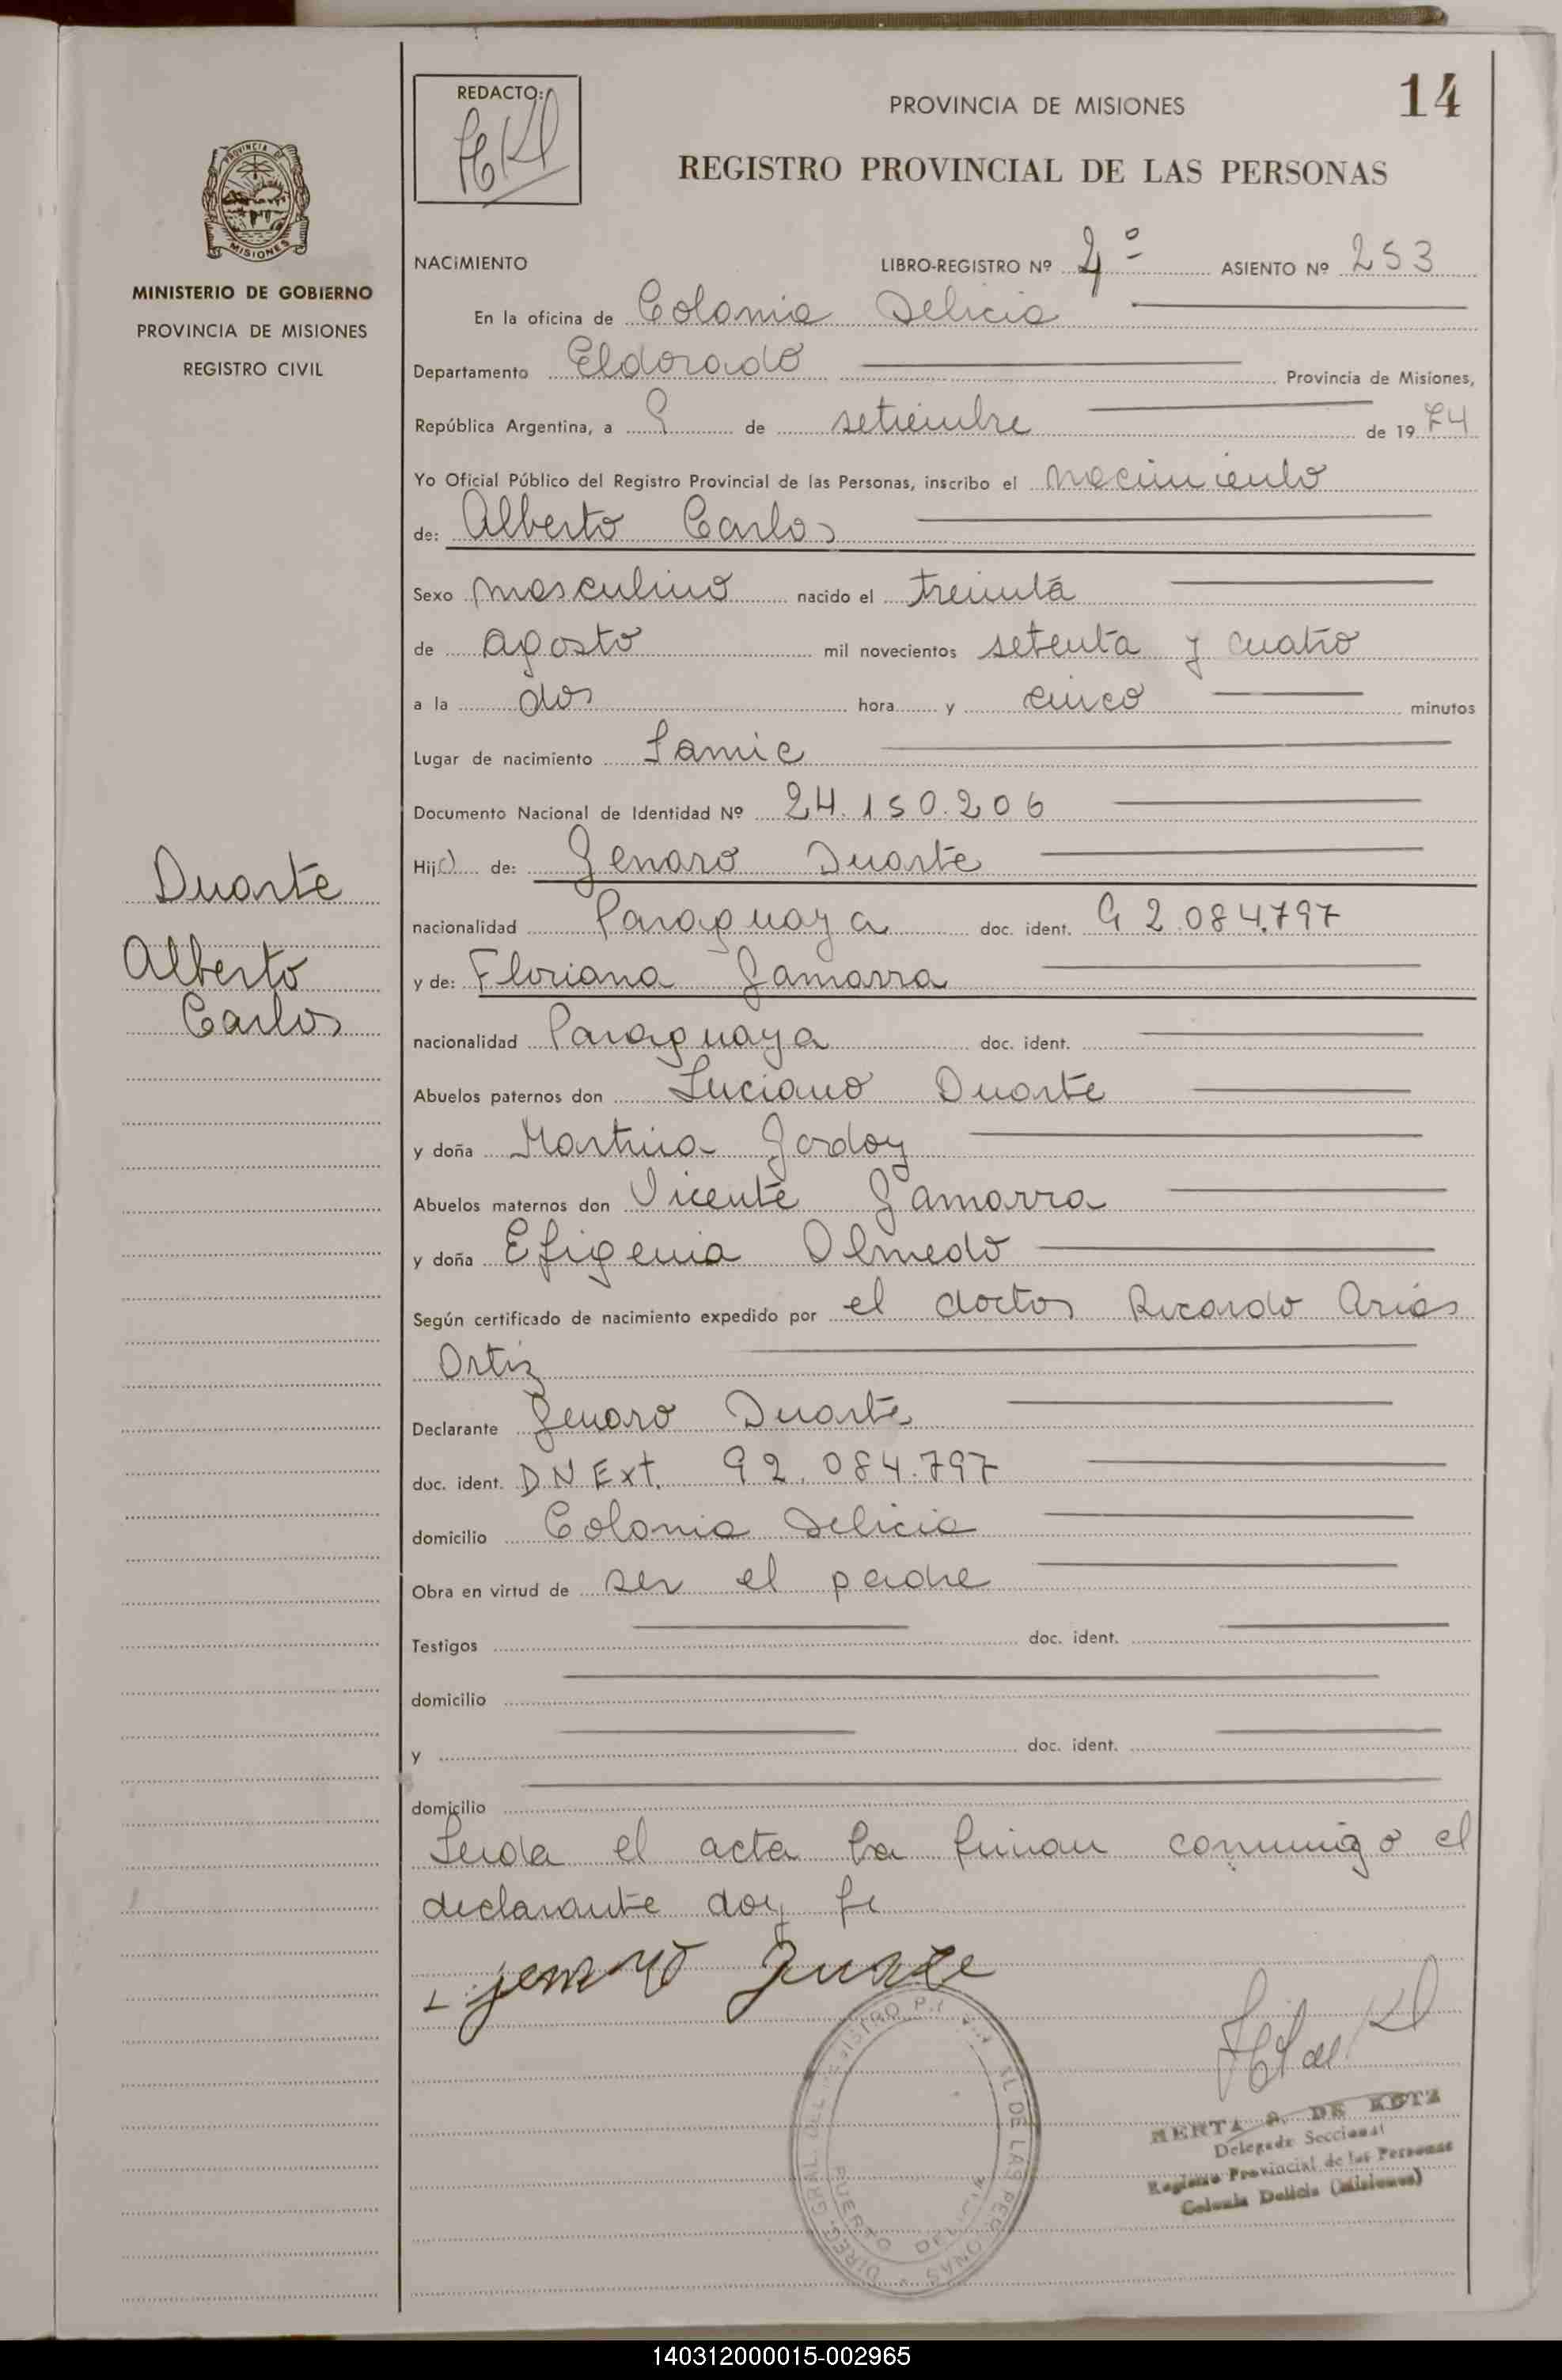 REDACTO:
PROVINCIA DE MISIONES
14
REGISTRO PROVINCIAL DE LAS PERSONAS
PROVINCIA DE
MISIONES
MINISTERIO DE GOBIERNO
PROVINCIA DE MISIONES
REGISTRO CIVIL
NACIMIENTO LIBRO-REGISTRO Nº 4º ASIENTO Nº 253
En la oficina de Colonia Delicia
Departamento Eldorado Provincia de Misiones,
República Argentina, a 9 de setiembre de 1974
Yo Oficial Público del Registro Provincial de las Personas, inscribo el nacimiento
de: Alberto Carlos
Sexo masculino nacido el treinta
de agosto mil novecientos setenta y cuatro
a la dos hora y cinco minutos
Lugar de nacimiento Samic
Documento Nacional de Identidad Nº 24.150.206
Hijo de: Genaro Duarte
nacionalidad Paraguaya doc. ident. 92.084.797
y de: Floriana Gamarra
nacionalidad Paraguaya doc. ident.
Abuelos paternos don Luciano Duarte
y doña Martina Godoy
Abuelos maternos don Vicente Gamarra
y doña Efigenia Olmedo
Según certificado de nacimiento expedido por el doctor Ricardo Arias
Ortiz
Declarante Genaro Duarte
doc. ident. D.N Ext. 92.084.797
domicilio Colonia Delicia
Obra en virtud de ser el padre
Testigos doc. ident.
domicilio
y doc. ident.
domicilio
Leida el acta la firman conmigo el
declarante doy fe
Duarte
Alberto
Carlos
DIREC. GRAL. DEL REGISTRO DE LAS PERSONAS
PUERTO
DE KOTZ
Delegada Seccional
Registro Provincial de las Personas
Colonia Delicia (Misiones)
140312000015-002965